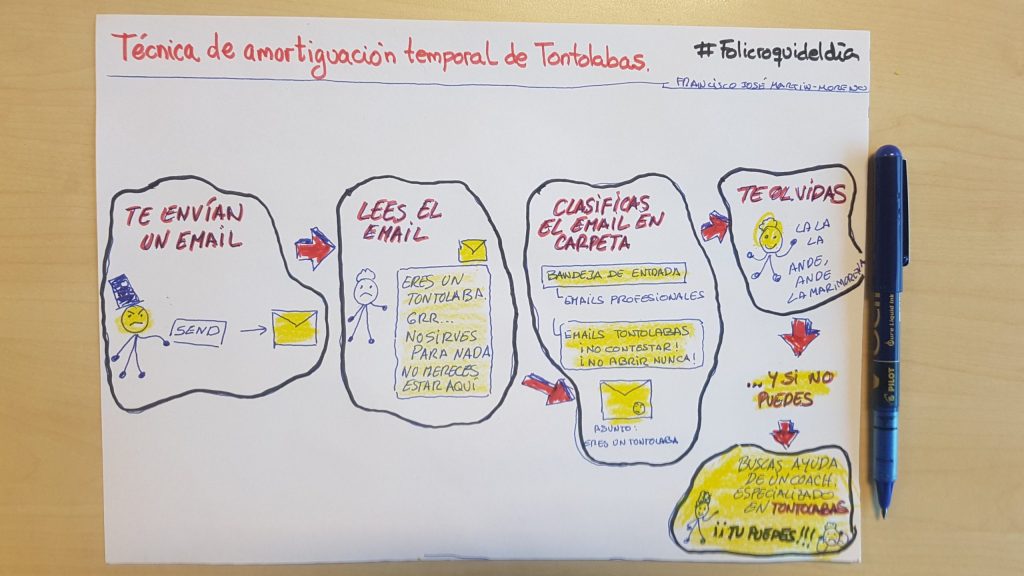 Técnica de amortiguación temporal de Tontolabas.
#Folicroquideldía
FRANCISCO JOSÉ MARTÍN-MORENO
TE ENVÍAN
UN EMAIL
SEND
LEES EL
EMAIL
ERES UN
TONTOLABA.
GRR...
NO SIRVES
PARA NADA
NO MERECES
ESTAR AQUÍ
CLASIFICAS
EL EMAIL EN
CARPETA
BANDEJA DE ENTRADA
EMAILS PROFESIONALES
EMAILS TONTOLABAS
¡NO CONTESTAR!
¡NO ABRIR NUNCA!
ASUNTO:
ERES UN TONTOLABA
TE OLVIDAS
LA LA
LA
ANDE,
ANDE
LA MARIMORENA
...Y SI NO
PUEDES
BUSCAS AYUDA
DE UN COACH
ESPECIALIZADO
EN TONTOLABAS
¡¡TU PUEDES!!!
PILOT
Pure Liquid Ink